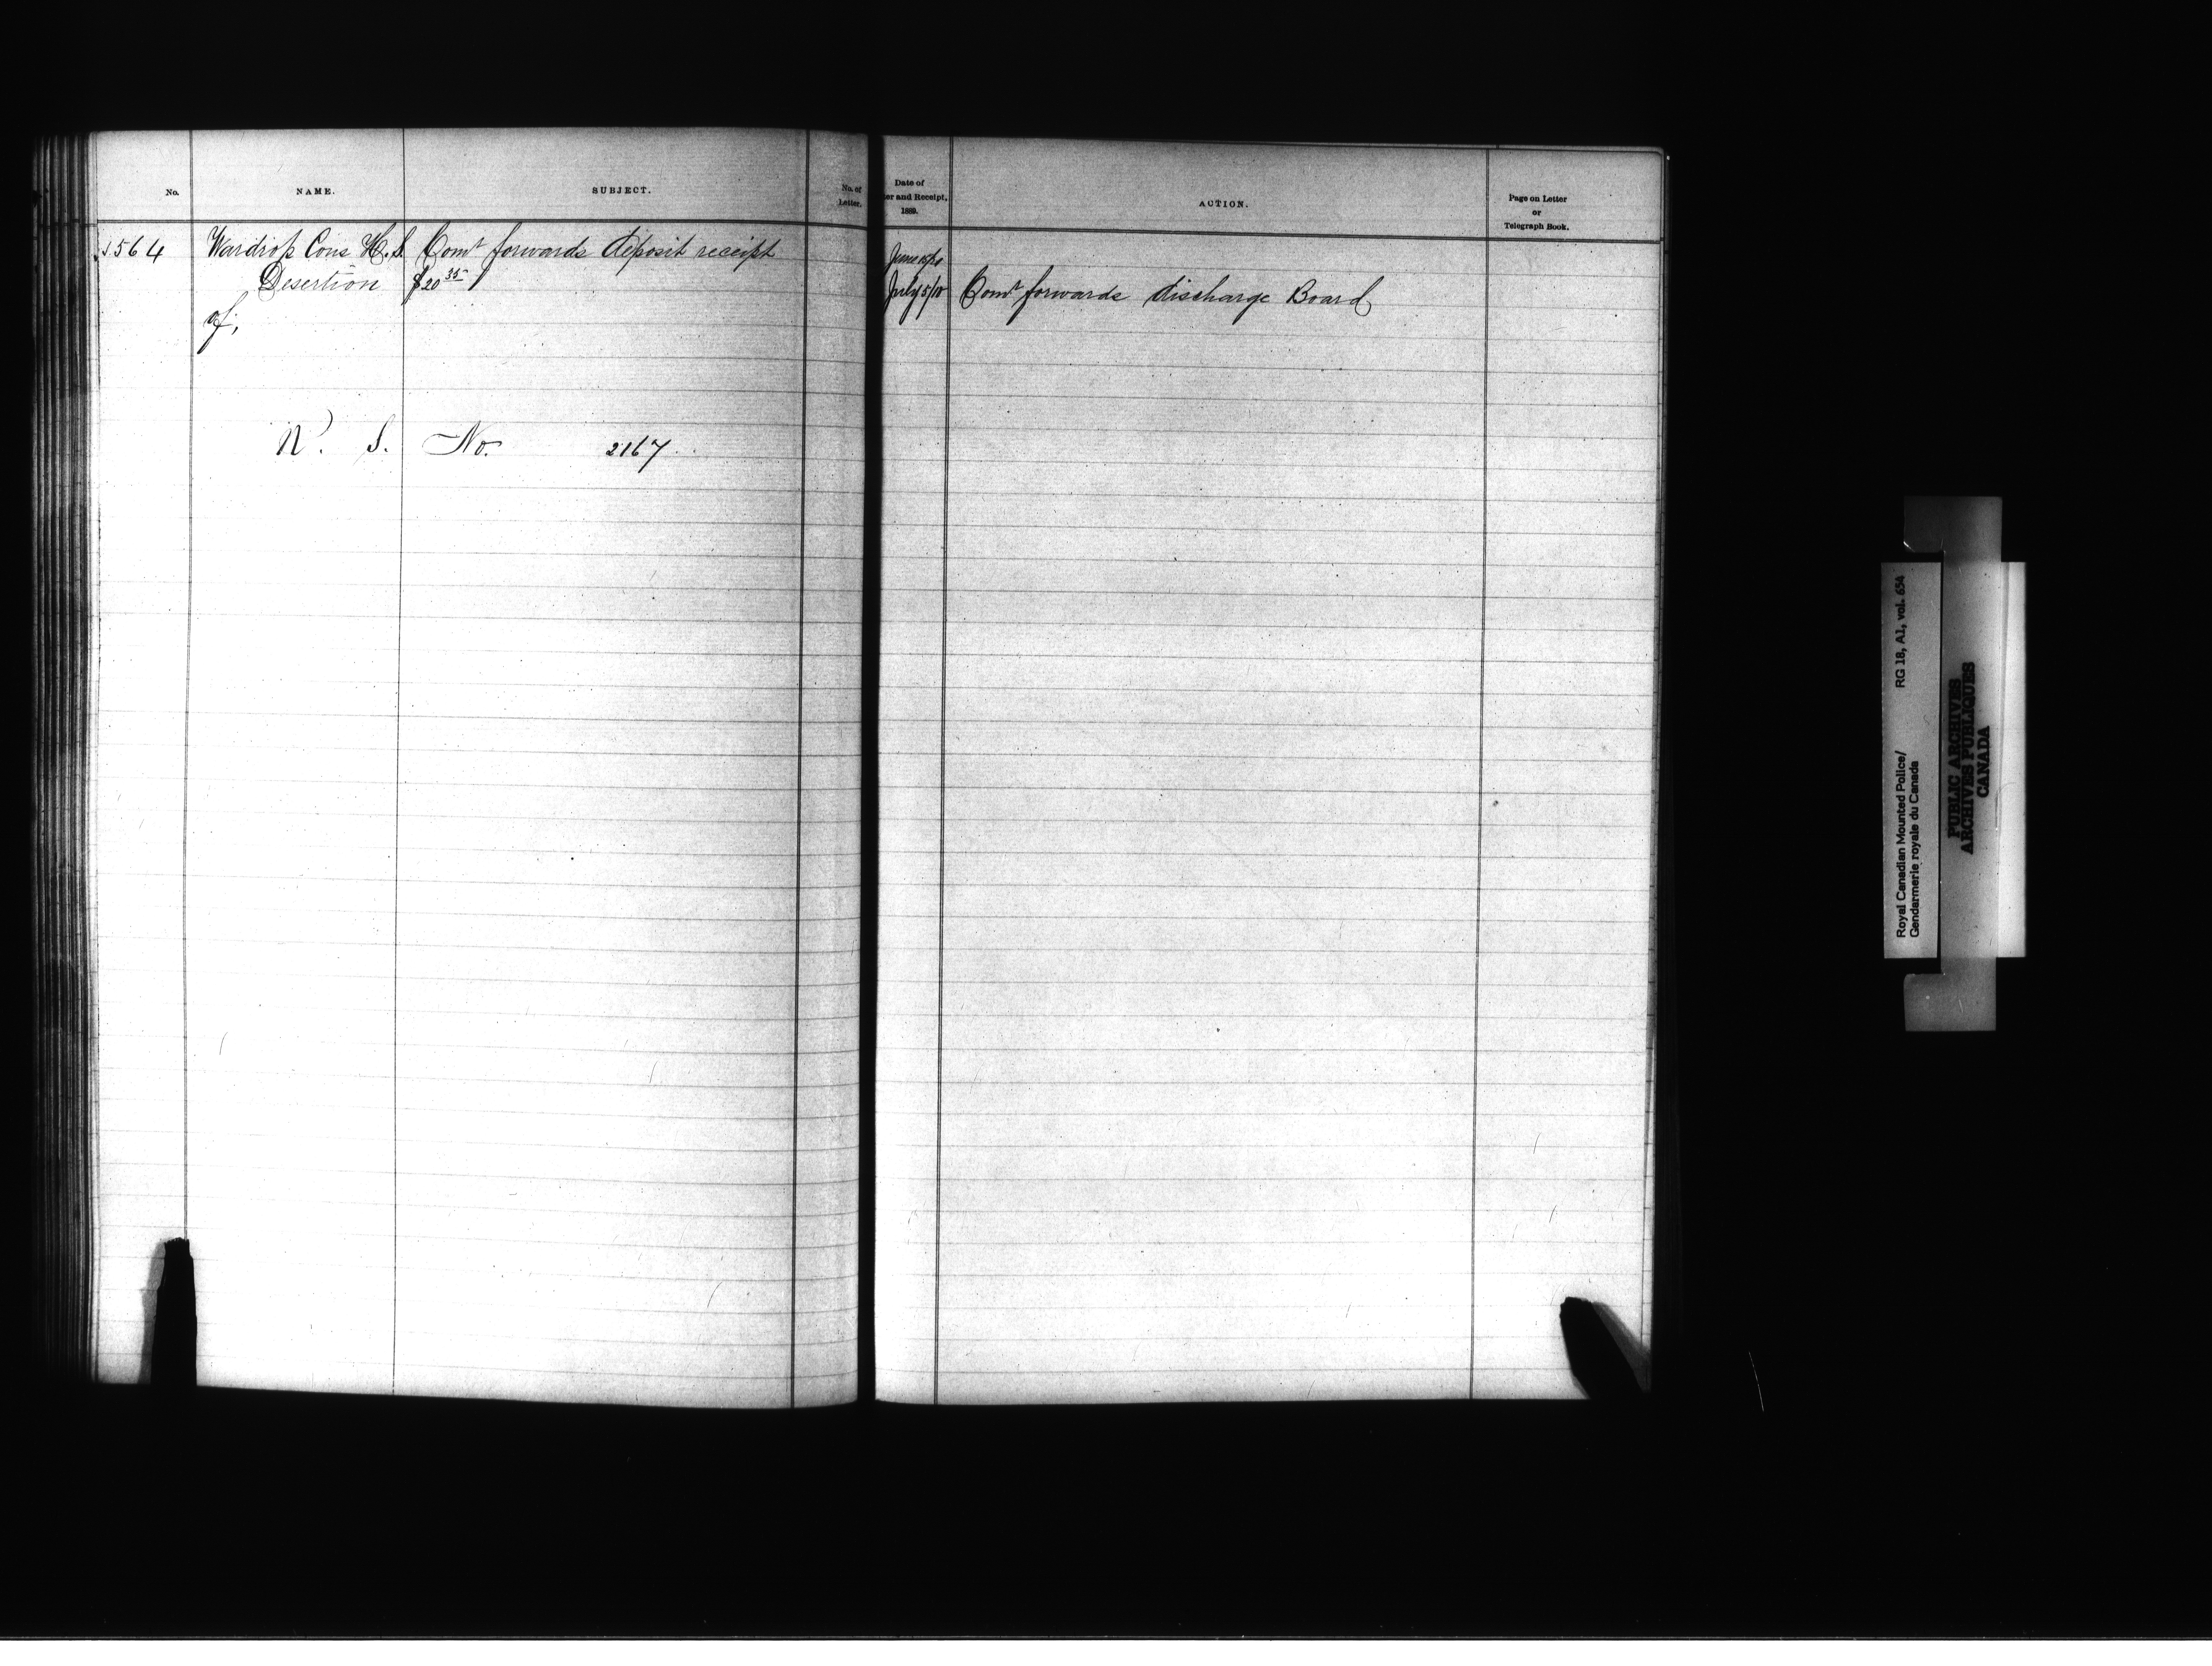 No.
NAME.
SUBJECT.
No. of
Letter.
Date of
er and Receipt,
1889.
ACTION.
Page on Letter
or
Telegraph Book.
564 Wardrop Cons H. S. Comr forwards deposit receipt
Desertion $20 35
of,
June
July 5/10 Comr forwards discharge Board
N. S. No. 2167
Royal Canadian Mounted Police/ RG 18, A1, vol. 654
Gendarmerie royale du Canada
PUBLIC ARCHIVES
ARCHIVES PUBLIQUES
CANADA